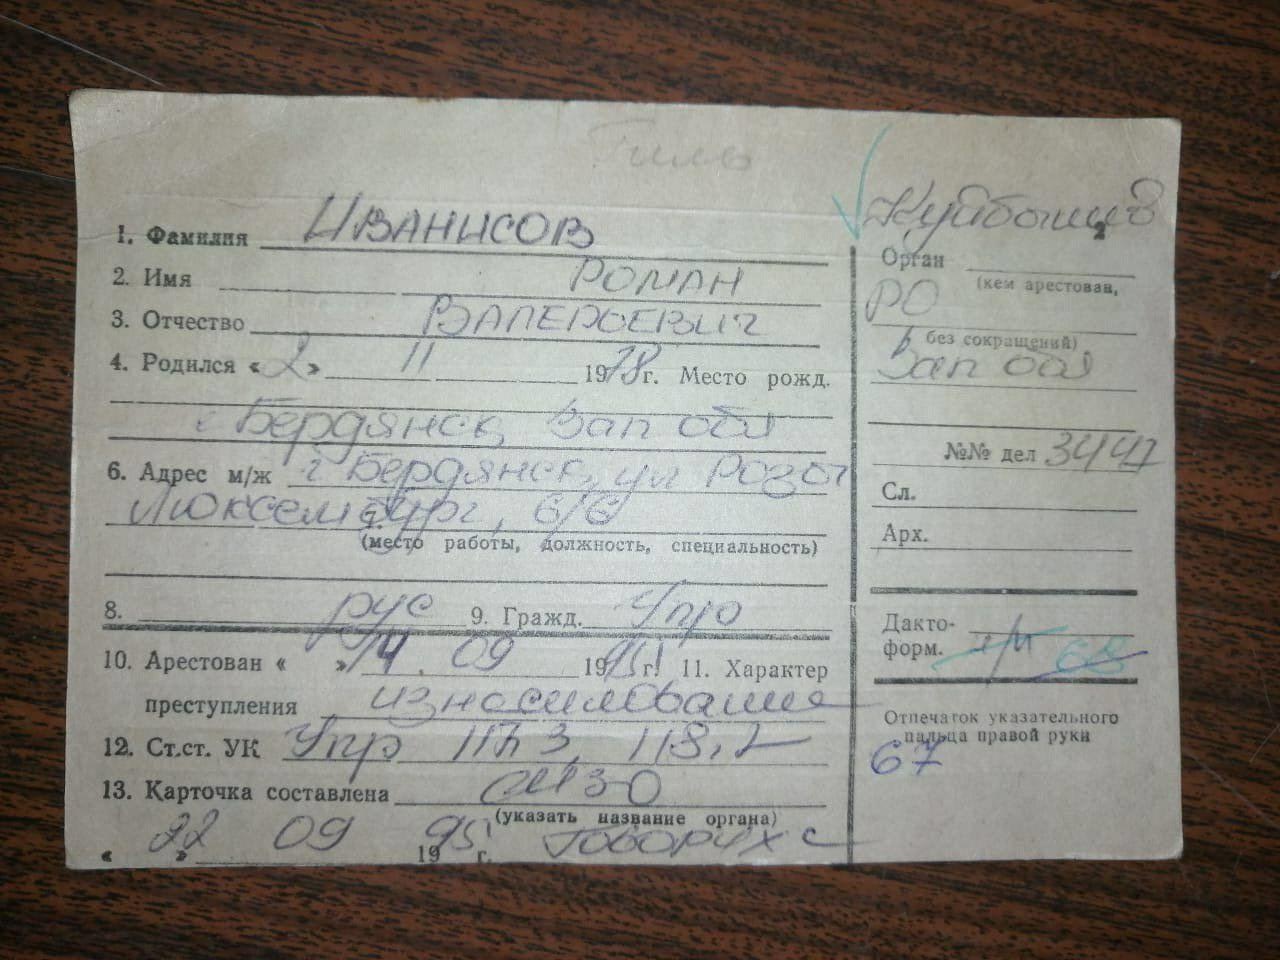 Гиль
1. Фамилия ИВАНИСОВ
2. Имя РОМАН
3. Отчество ВАЛЕРЬЕВИЧ
4. Родился «2» 11 1978 г. Место рожд.
г. Бердянск, Зап обл
6. Адрес м/ж г. Бердянск, ул Розы
Люксембург, 6/6
7.
(место работы, должность, специальность)
8. рус 9. Гражд. Укр
10. Арестован « » 14. 09 1995 г. 11. Характер
преступления изнасилование
12. Ст.ст. УК Укр 117 ч 3, 118, 2
13. Карточка составлена СИЗО
(указать название органа)
« 22 » 09 1995 г.
Куйбышев
Орган
(кем арестован,
РО
без сокращений)
Зап обл
№№ дел 3447
Сл.
Арх.
Дакто-
форм.
Отпечаток указательного
пальца правой руки
67